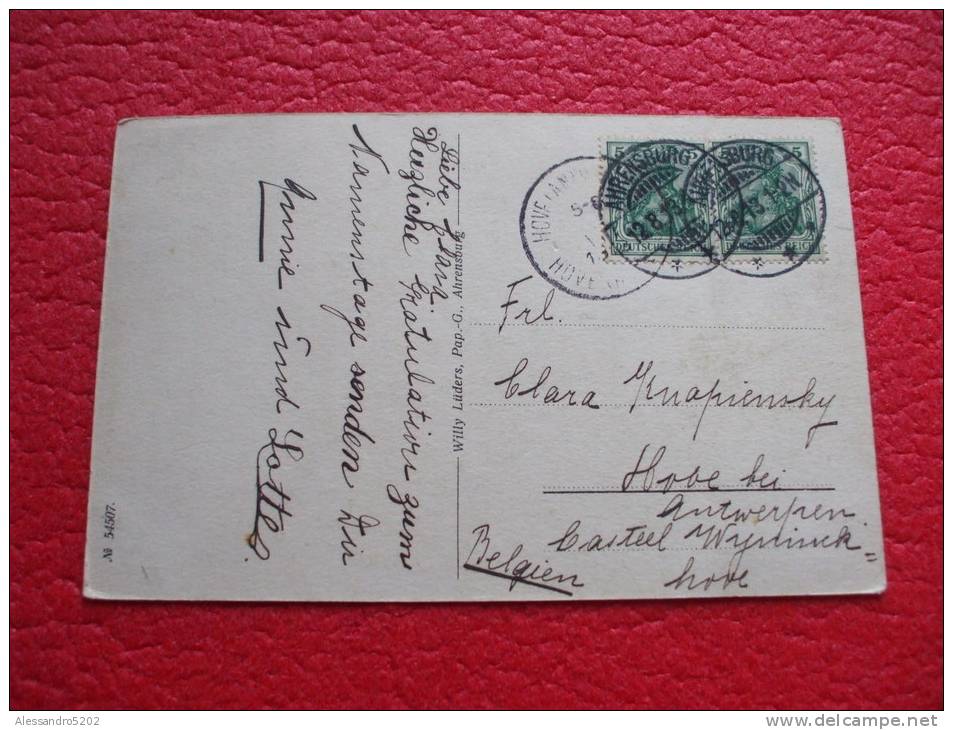 Liebe Clara
Herzliche Gratulation zum
Namenstage senden Dir
Annie und Lottes.
Willy Lüders, Pap.-G., Ahrensburg
№ 54507.
HOVE
HOVE
AHRENSBURG
12.8.13
AHRENSBURG
12.8.13
5
5
DEUTSCHES
REICH
Frl.
Clara Knapiensky
Hove bei
Antwerpen
Casteel Wyninck=
hove
Belgien
Alessandro5202
www.delcampe.net